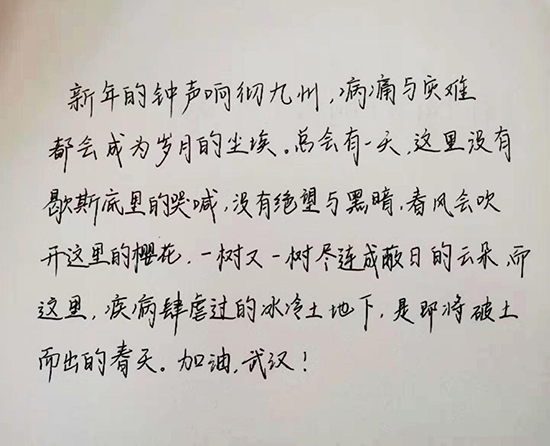 新年的钟声响彻九州，病痛与灾难
都会成为岁月的尘埃。总会有一天，这里没有
歇斯底里的哭喊，没有绝望与黑暗，春风会吹
开这里的樱花，一树又一树尽连成蔽日的云朵，而
这里，疾病肆虐过的冰冷土地下，是即将破土
而出的春天。加油，武汉！